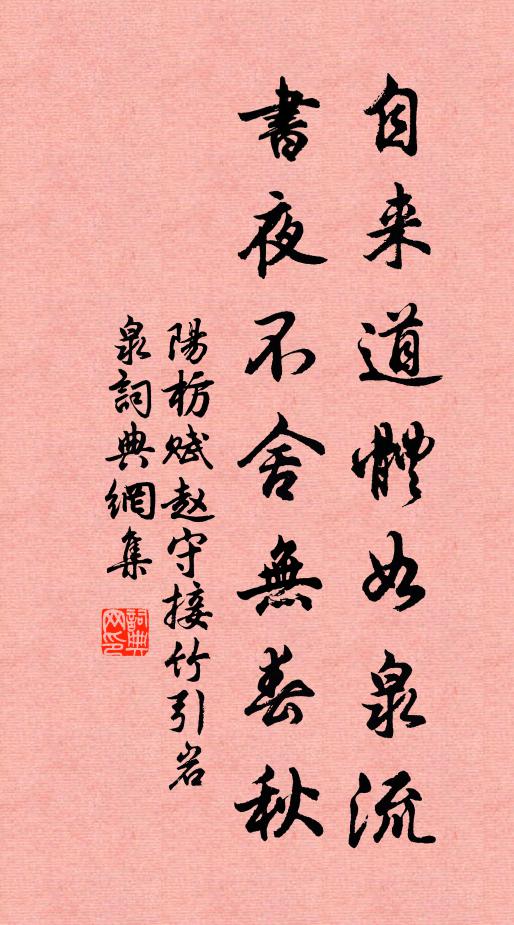 自来道體如泉流
書夜不舍無春秋
陽枋赋赵守接竹引岩
泉詞典網集
詞典
网印